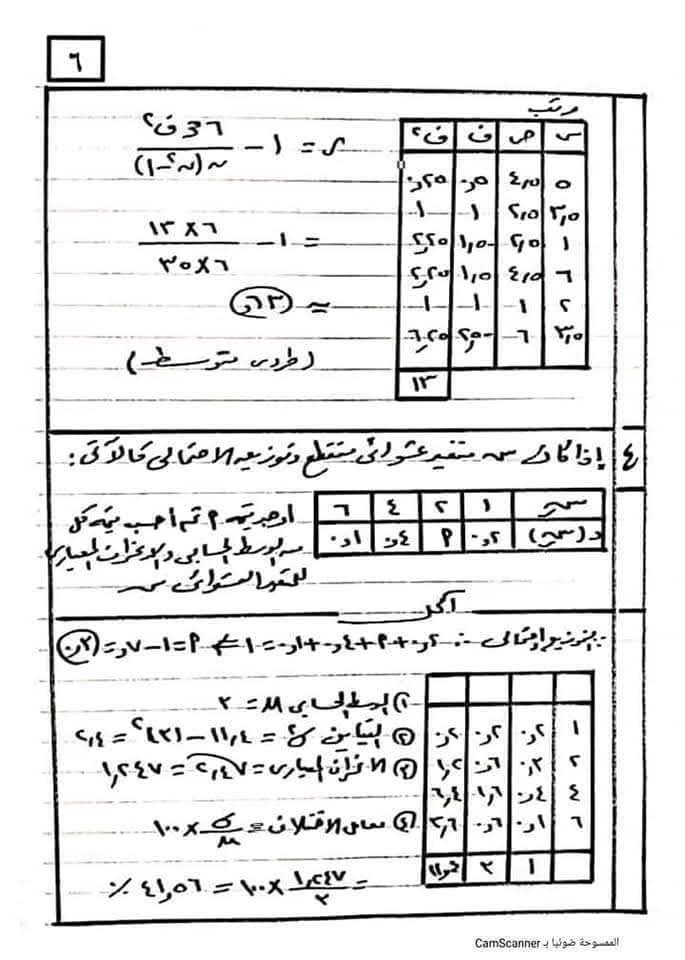 ٦
رتب
س ص ف ف٢
٥ ٤,٥ ٠,٥ ٠,٢٥
٣,٥ ٢,٥ ١ ١
١ ٢,٥ -١,٥ ٢,٢٥
٦ ٤,٥ ١,٥ ٢,٢٥
٢ ١ ١ ١
٣,٥ ٦ -٢,٥ ٦,٢٥
١٣
ر = ١ - ٦ مجـ ف٢ / ن(ن٢-١)
= ١ - ٦×١٣ / ٦×٣٥
≃ ٠,٦٣
(طردى متوسط)
٤ إذا كان س متغير عشوائى متقطع وتوزيعه الاحتمالى كالآتى:
سر ١ ٢ ٤ ٦
د(سر) ٠,٢ م ٠,٤ ٠,١
اوجد قيمة م ثم أحسب قيمة كل
من الوسط الحسابى والانحراف المعيارى
للمتغير العشوائى س
الحل
∵ التوزيع احتمالى ∴ ٠,٢ + م + ٠,٤ + ٠,١ = ١ ⇐ م = ١ - ٠,٧ = ٠,٣
١ ٠,٢ ٠,٢ ٠,٢
٢ ٠,٣ ٠,٦ ١,٢
٤ ٠,٤ ١,٦ ٦,٤
٦ ٠,١ ٠,٦ ٣,٦
١ ٣ ١١,٤
(١) الوسط الحسابى μ = ٣
(٢) التباين σ٢ = ١١,٤ - (٣)٢ = ٢,٤
(٣) الانحراف المعيارى = √٢,٤٧ = ١,٢٤٧
(٤) معامل الاختلاف = σ/μ × ١٠٠
= ١,٢٤٧/٣ × ١٠٠ = ٤١,٥٦ %
الممسوحة ضوئيا بـ CamScanner